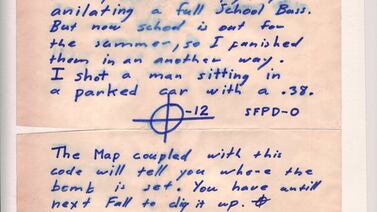 anilating a full School Buss.
But now school is out for
the summer, so I punished
them in an another way.
I shot a man sitting in
a parked car with a .38.
-12 SFPD-0
The Map coupled with this
code will tell you where the
bomb is set. You have untill
next Fall to dig it up.